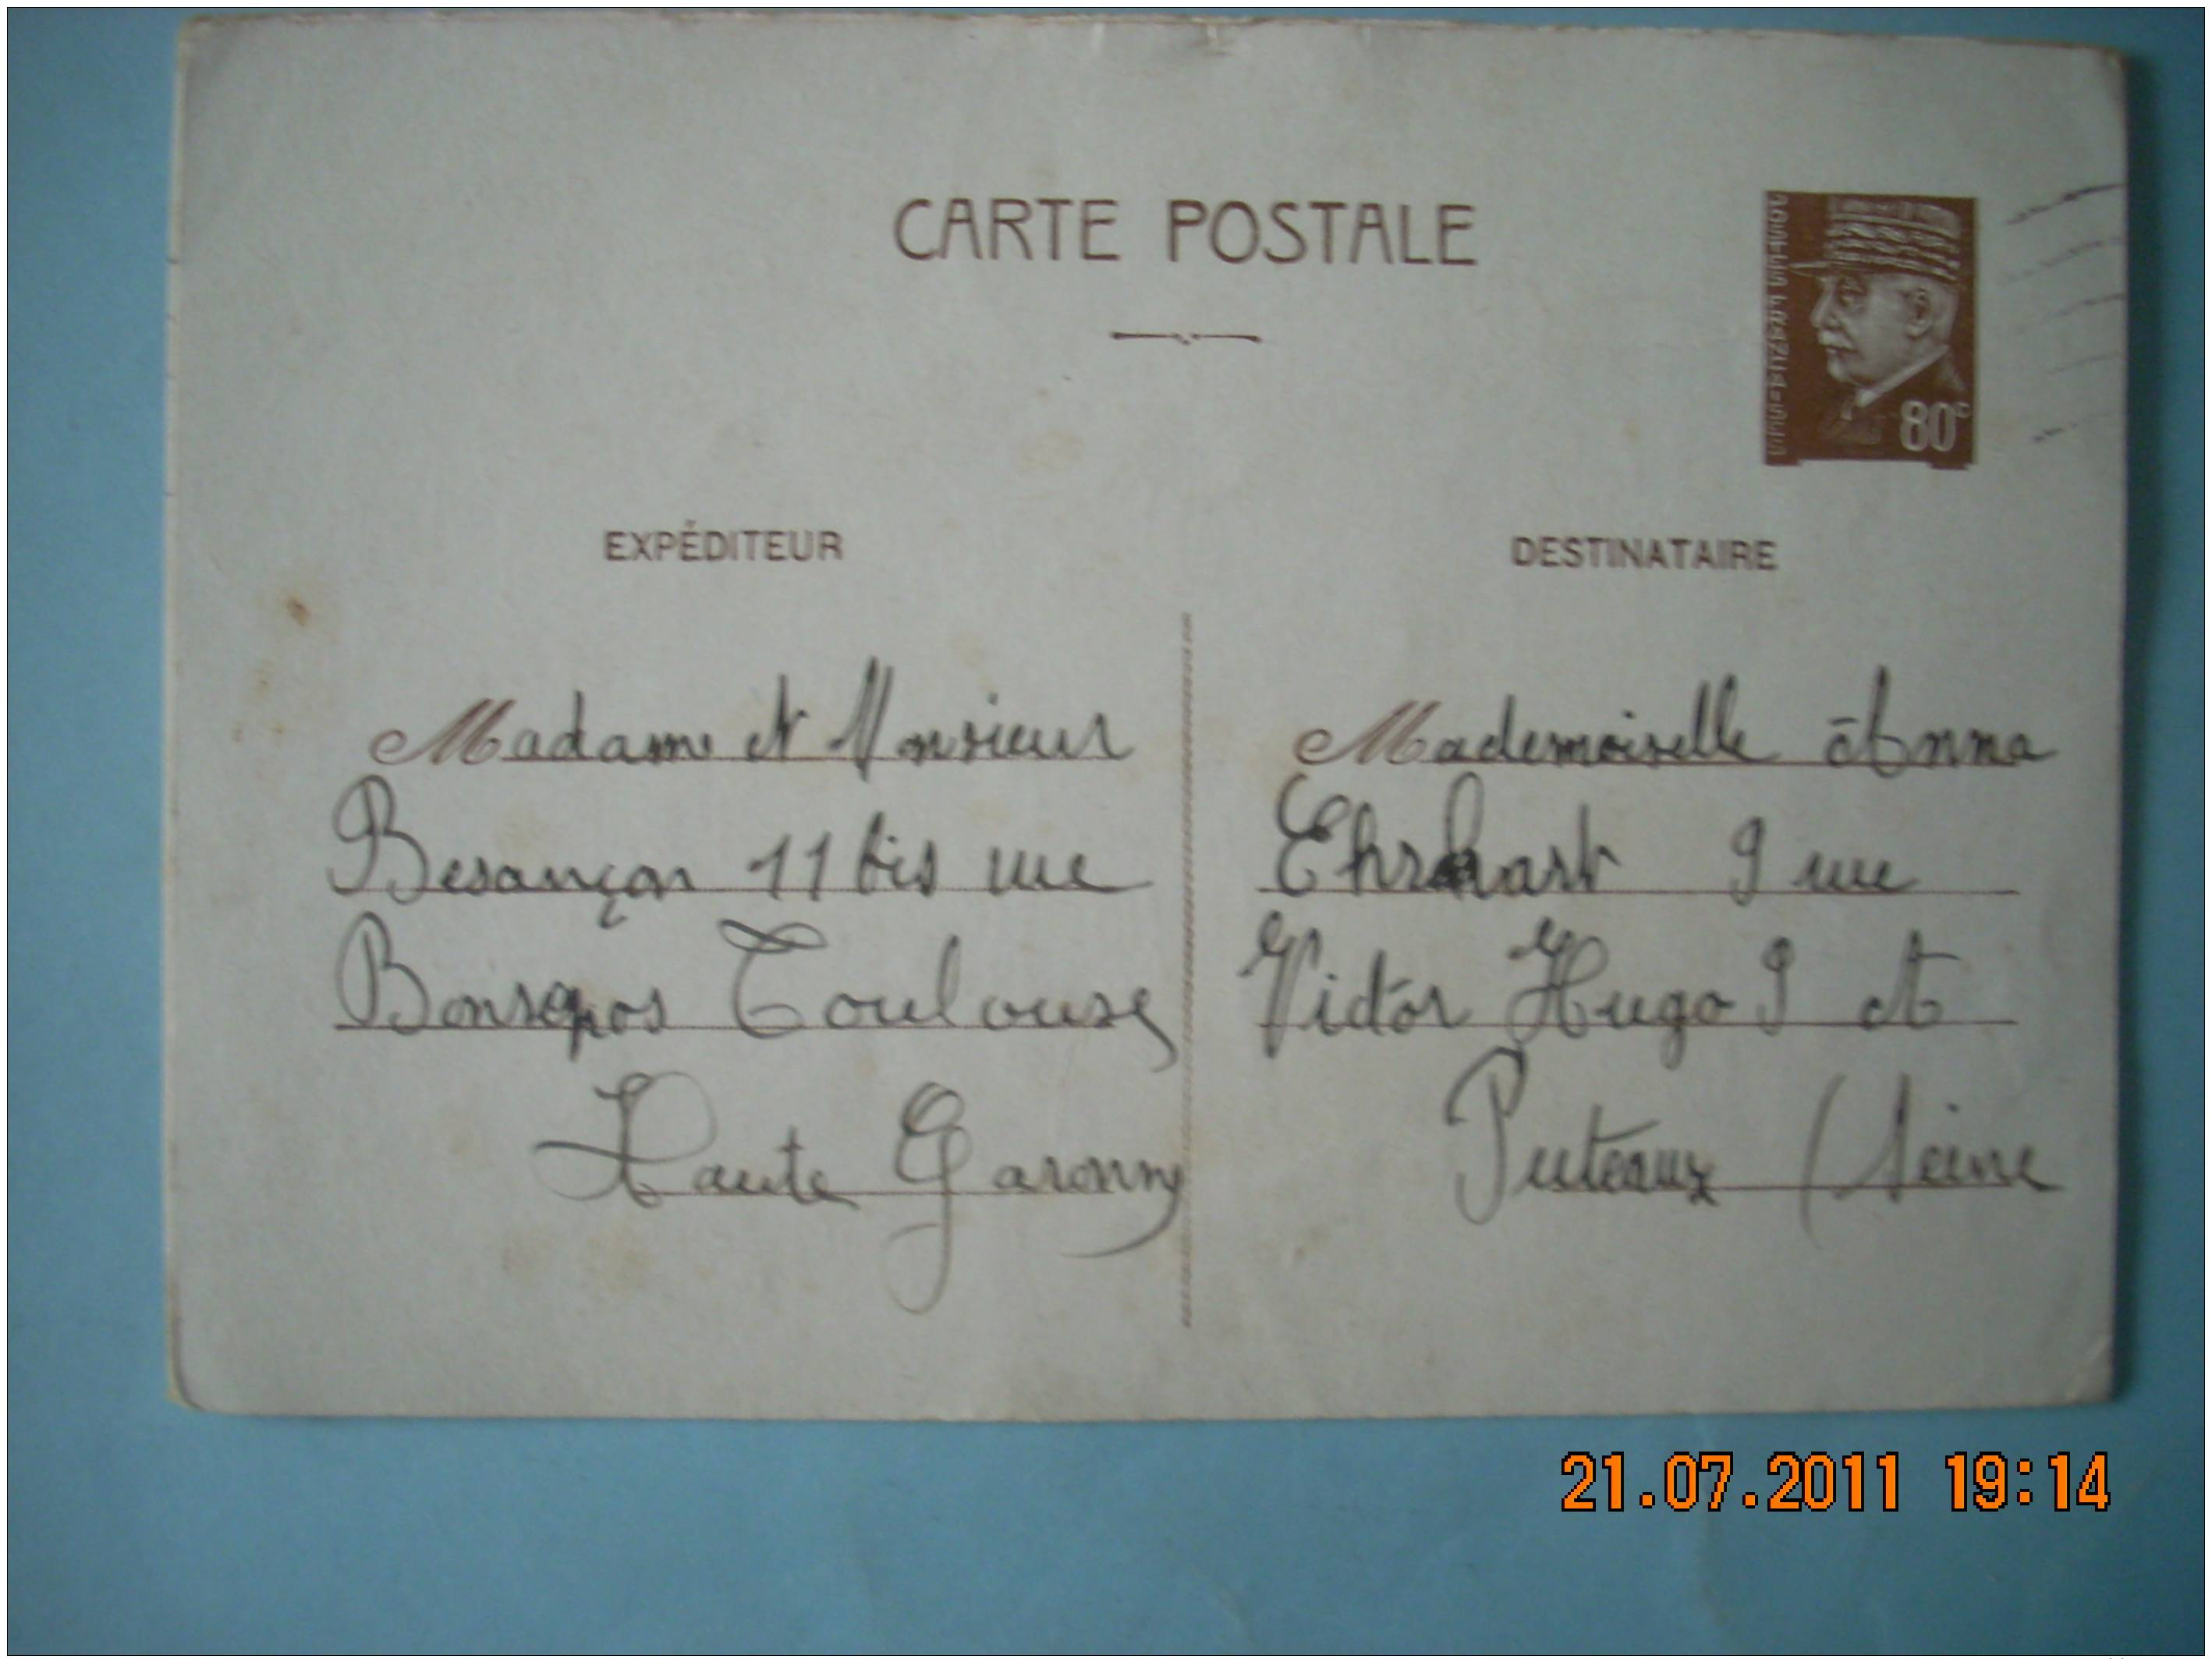 CARTE POSTALE
POSTES FRANÇAISES
80c
EXPÉDITEUR
Madame et Monsieur
Besançon 11 bis rue
Bonrepos Toulouse
Haute Garonne
DESTINATAIRE
Mademoiselle Anna
Ehrhart 9 rue
Victor Hugo 9 et
Puteaux (Seine
21.07.2011 19:14